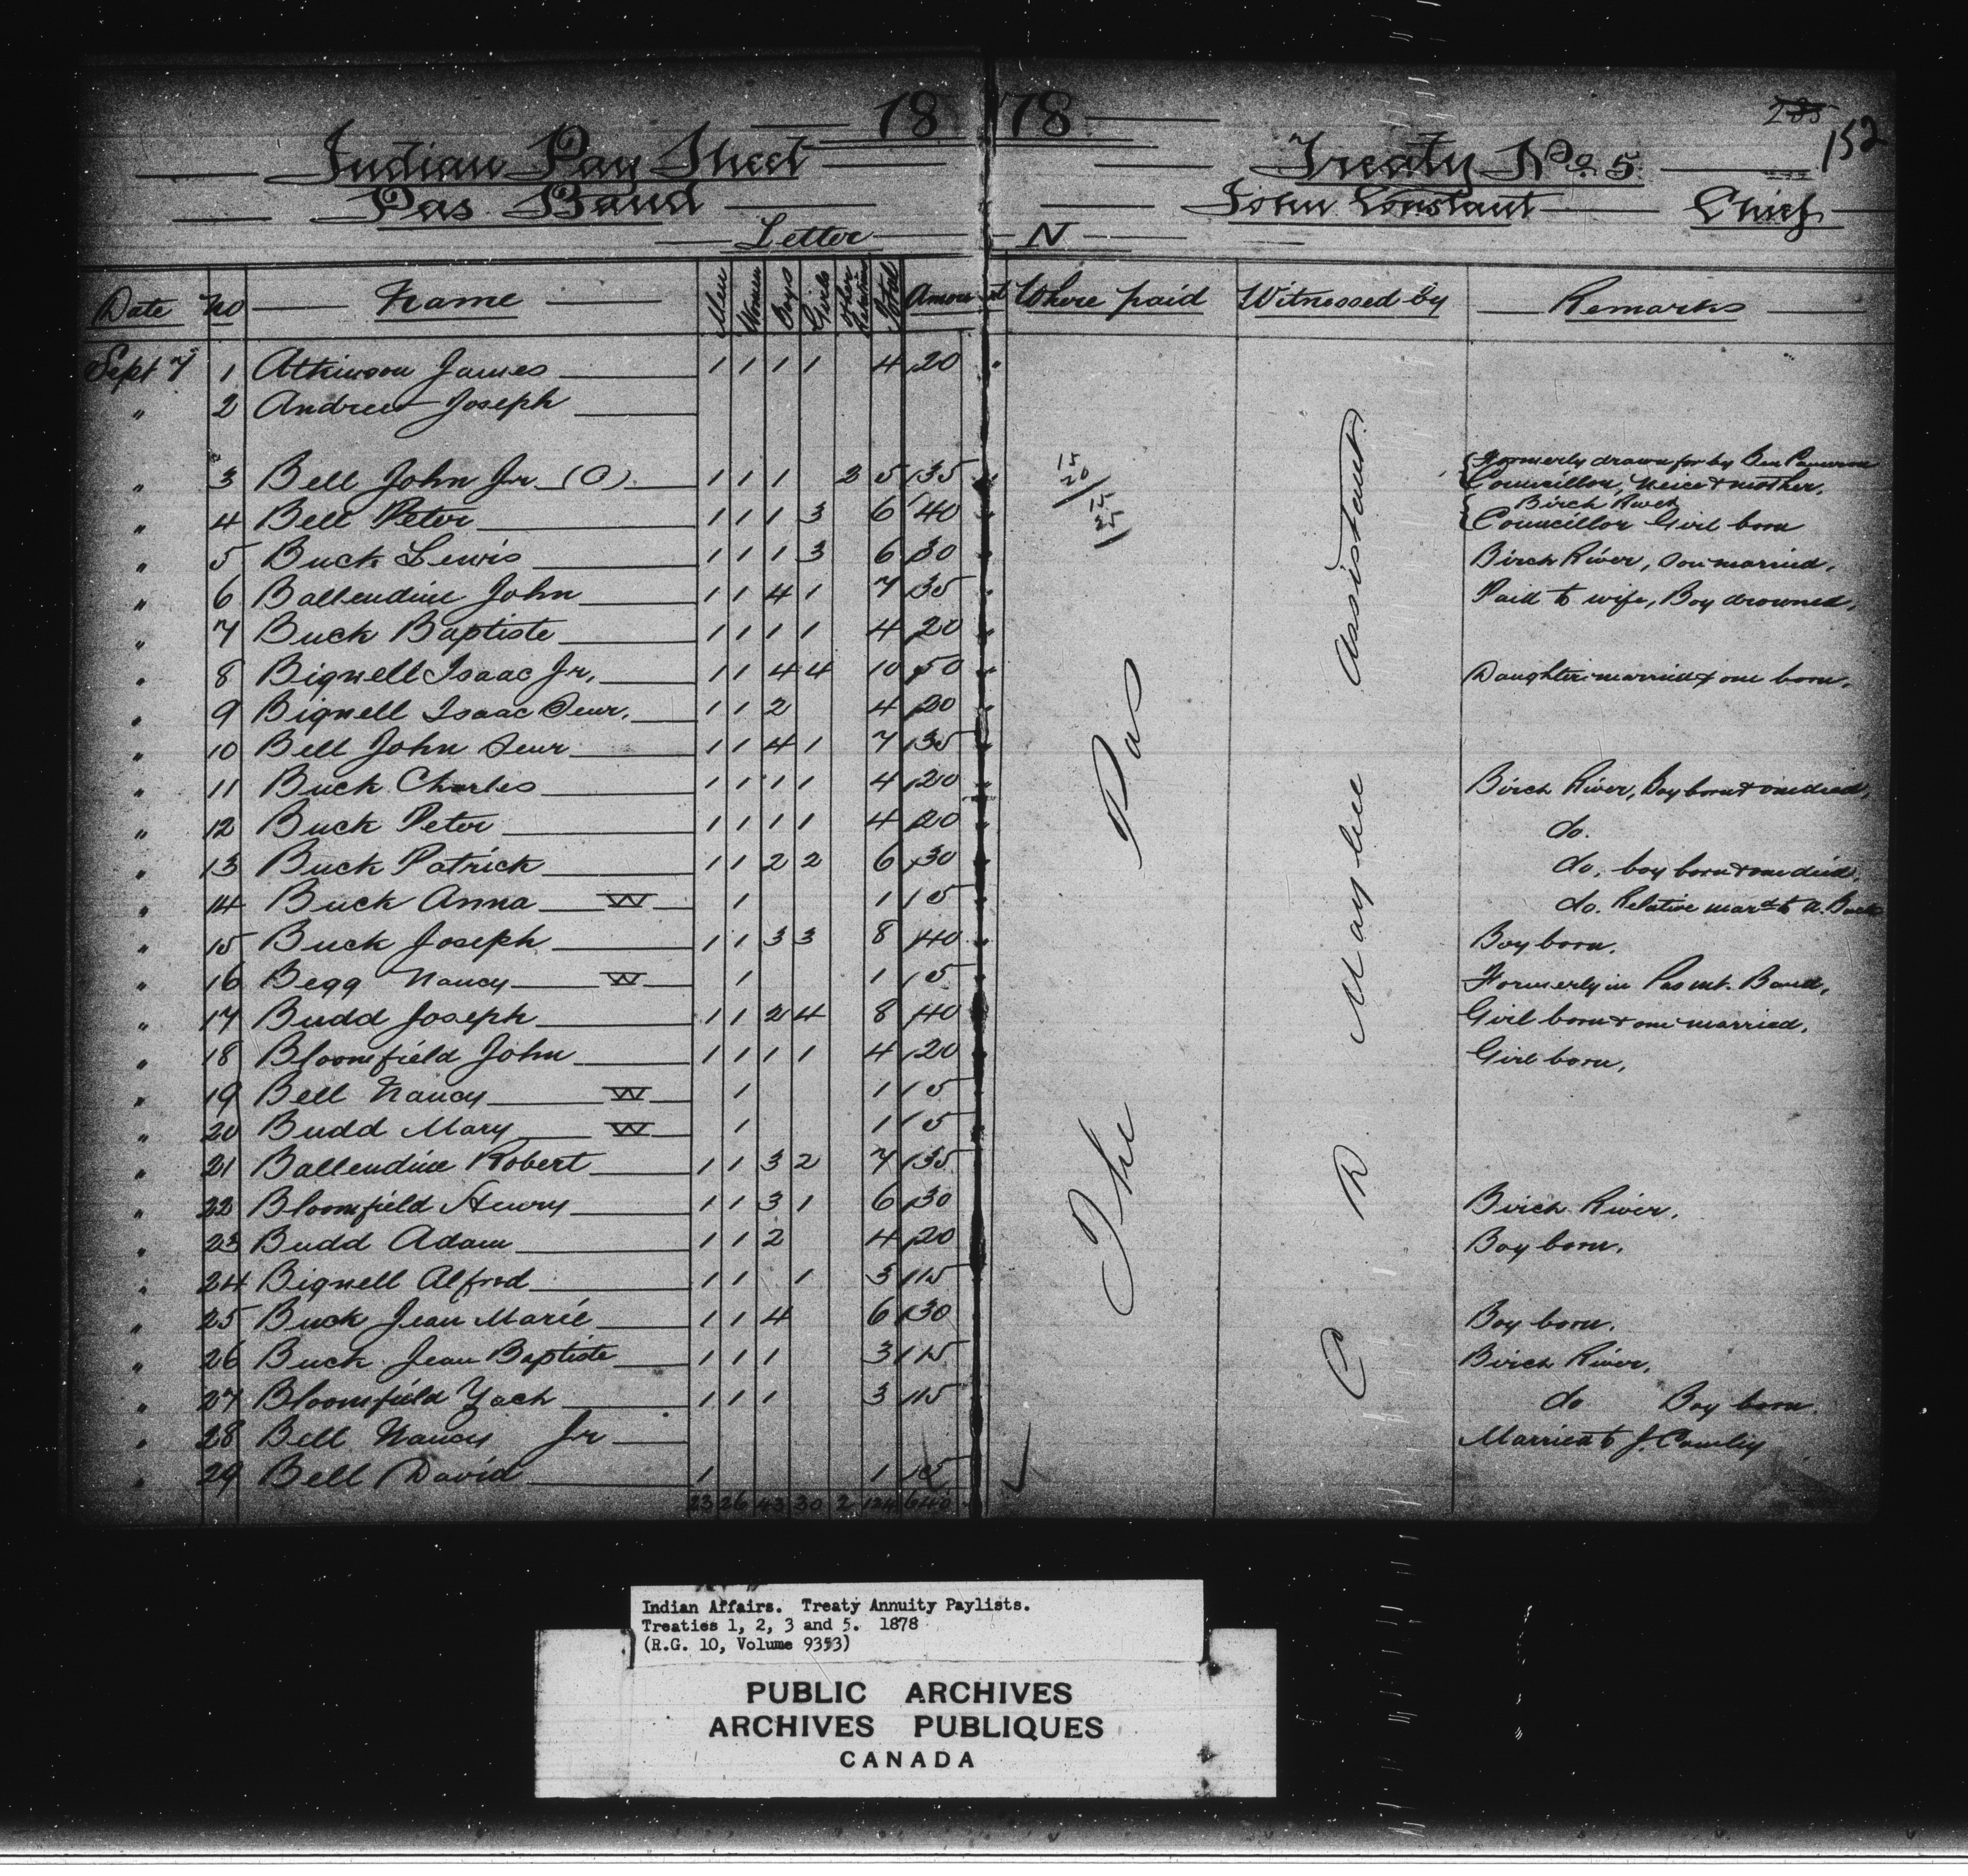 1878
235 152
Indian Pay Sheet Treaty No. 5
Pas Band John Constant Chief
Letter N
Date No Name Men Women Boys Girls Other Relatives Total Amount Where paid Witnessed by Remarks
Sept 7 1 Atkinson James 1 1 1 1 4 20
" 2 Andrew Joseph
" 3 Bell John Jr (O) 1 1 1 2 5 35 15 20/ Formerly drawn for by Ben Cameron Councillor, neice & mother,
" 4 Bell Peter 1 1 1 3 6 40 15 25/ Birch River Councillor Girl born
" 5 Buck Lewis 1 1 1 3 6 30 Birch River, Son married,
" 6 Ballendine John 1 1 4 1 7 35 Paid to wife, Boy drowned,
" 7 Buck Baptiste 1 1 1 1 4 20
" 8 Bignell Isaac Jr, 1 1 4 4 10 50 Daughter married & one born,
" 9 Bignell Isaac Senr, 1 1 2 4 20
" 10 Bell John Senr 1 1 4 1 7 35
" 11 Buck Charles 1 1 1 1 4 20 Birch River, Boy born & one died,
" 12 Buck Peter 1 1 1 1 4 20 do.
" 13 Buck Patrick 1 1 2 2 6 30 do, boy born & one died,
" 14 Buck Anna W 1 1 5 do. Relative mard to A. Buck
" 15 Buck Joseph 1 1 3 3 8 40 Boy born.
" 16 Begg Nancy W 1 1 5 Formerly in Pas mt. Band,
" 17 Budd Joseph 1 1 2 4 8 40 Girl born & one married,
" 18 Bloomfield John 1 1 1 1 4 20 Girl born,
" 19 Bell Nancy W 1 1 5
" 20 Budd Mary W 1 1 5
" 21 Ballendine Robert 1 1 3 2 7 35
" 22 Bloomfield Henry 1 1 3 1 6 30 Birch River,
" 23 Budd Adam 1 1 2 4 20 Boy born,
" 24 Bignell Alfred 1 1 1 3 15
" 25 Buck Jean Marie 1 1 4 6 30 Boy born.
" 26 Buck Jean Baptiste 1 1 1 3 15 Birch River,
" 27 Bloomfield Zach 1 1 1 3 15 do Boy born.
" 28 Bell Nancy Jr Married to J.
" 29 Bell David 1 1 5
23 26 43 30 2 124 640
The Pas
C R Assistant
Indian Affairs. Treaty Annuity Paylists.
Treaties 1, 2, 3 and 5. 1878
(R.G. 10, Volume 9353)
PUBLIC ARCHIVES
ARCHIVES PUBLIQUES
CANADA